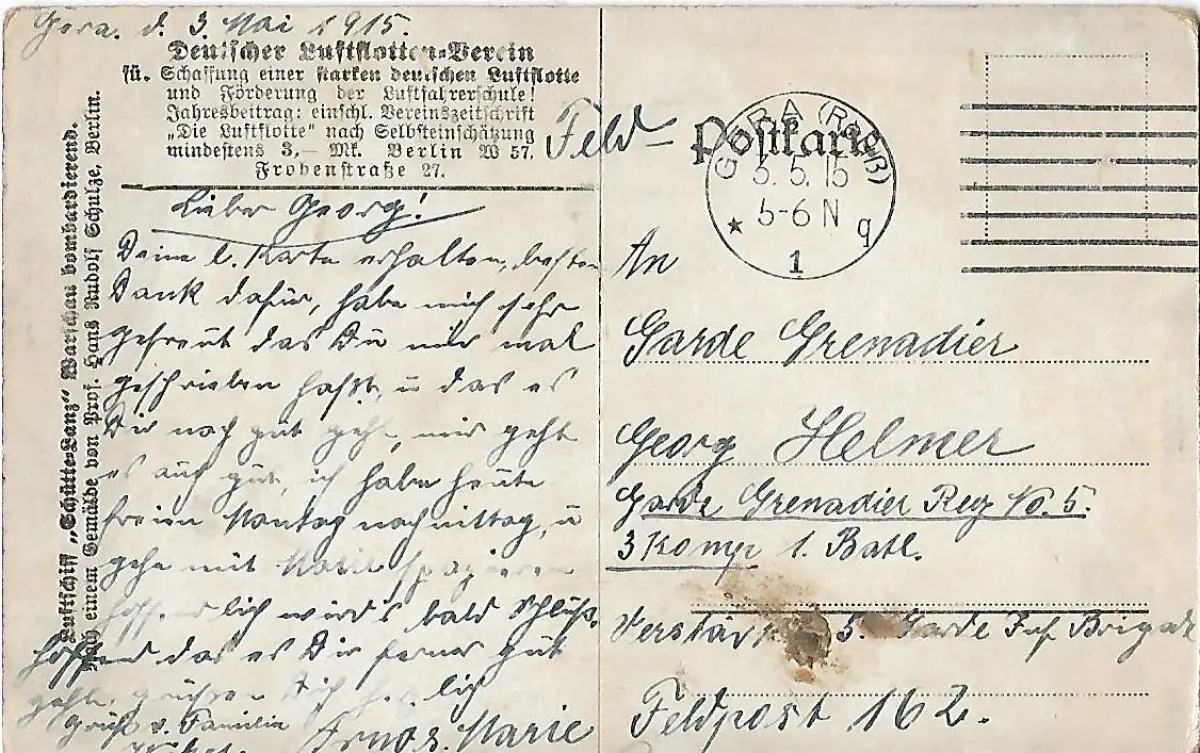 Gera. d. 3. Mai 1915.
Deutscher Luftflotten-Verein
fü. Schaffung einer starken deutschen Luftflotte
und Förderung der Luftfahrerschule!
Jahresbeitrag: einschl. Vereinszeitschrift
„Die Luftflotte“ nach Selbsteinschätzung
mindestens 3,— Mk. Berlin W 57.
Frobenstraße 27.
Luftschiff „Schütte-Lanz“ Warschau bombardierend.
Nach einem Gemälde von Prof. Hans Rudolf Schulze, Berlin.
Lieber Georg!
Deine l. Karte erhalten, besten
Dank dafür, habe mich sehr
gefreut das Du mir mal
geschrieben hast, u das es
Dir noch gut geht, mir geht
es auch gut, ich habe heute
freien Montag nachmittag, u
gehe mit Marie spazieren
hoffendlich wird's bald Schluß.
hoffend das es Dir ferner gut
geht, grüßen Dich herzlich
Gruß v. Familie
Marie
Feld- Postkarte
GERA (Reuß)
3. 5. 15
5-6 N
* 1 q
An
Garde Grenadier
Georg Helmer
Garde Grenadier Reg No. 5.
3 Komp 1. Batl.
5. Garde Inf Brigade
Feldpost 162.